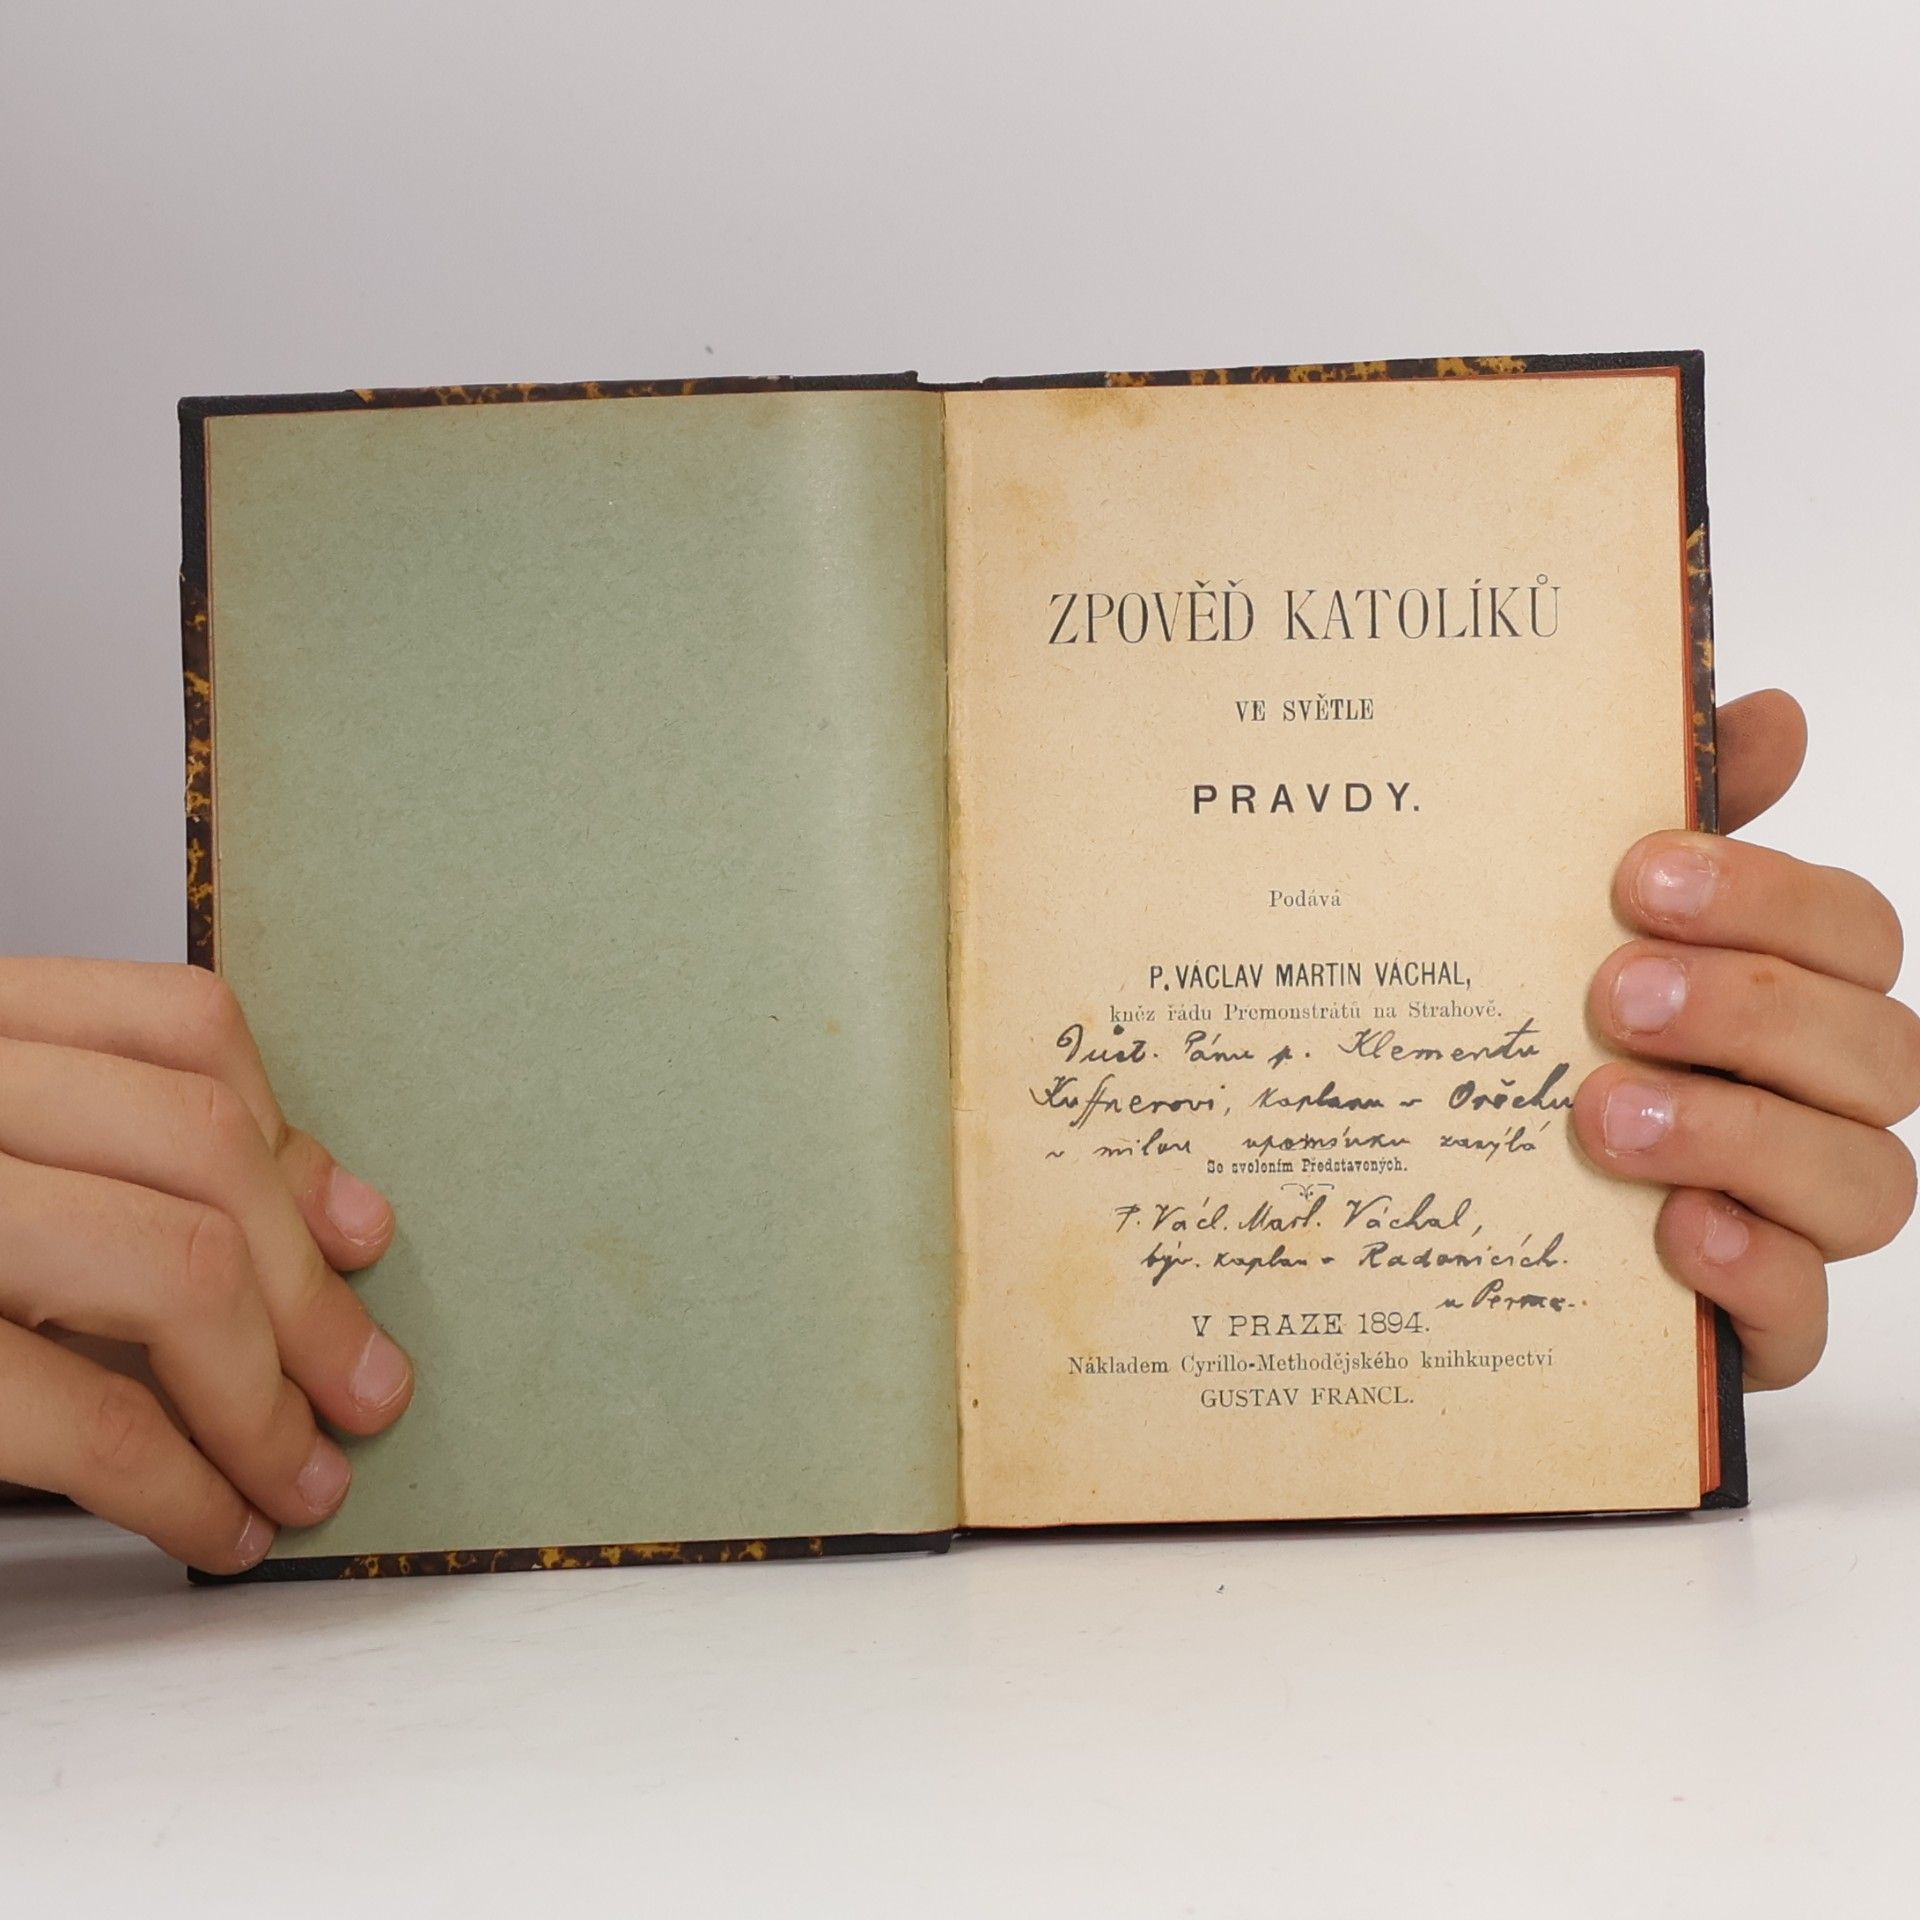 ZPOVĚĎ KATOLÍKŮ
VE SVĚTLE
PRAVDY.
Podává
P. VÁCLAV MARTIN VÁCHAL,
kněz řádu Premonstrátů na Strahově.
Důst. Pánu p. Klementu
Kuffnerovi, kaplanu v Ořechu
v milou upomínku zasýlá
Se svolením Představených.
P. Václ. Mart. Váchal,
býv. kaplan v Radonicích.
V PRAZE 1894.
Nákladem Cyrillo-Methodějského knihkupectví
GUSTAV FRANCL.